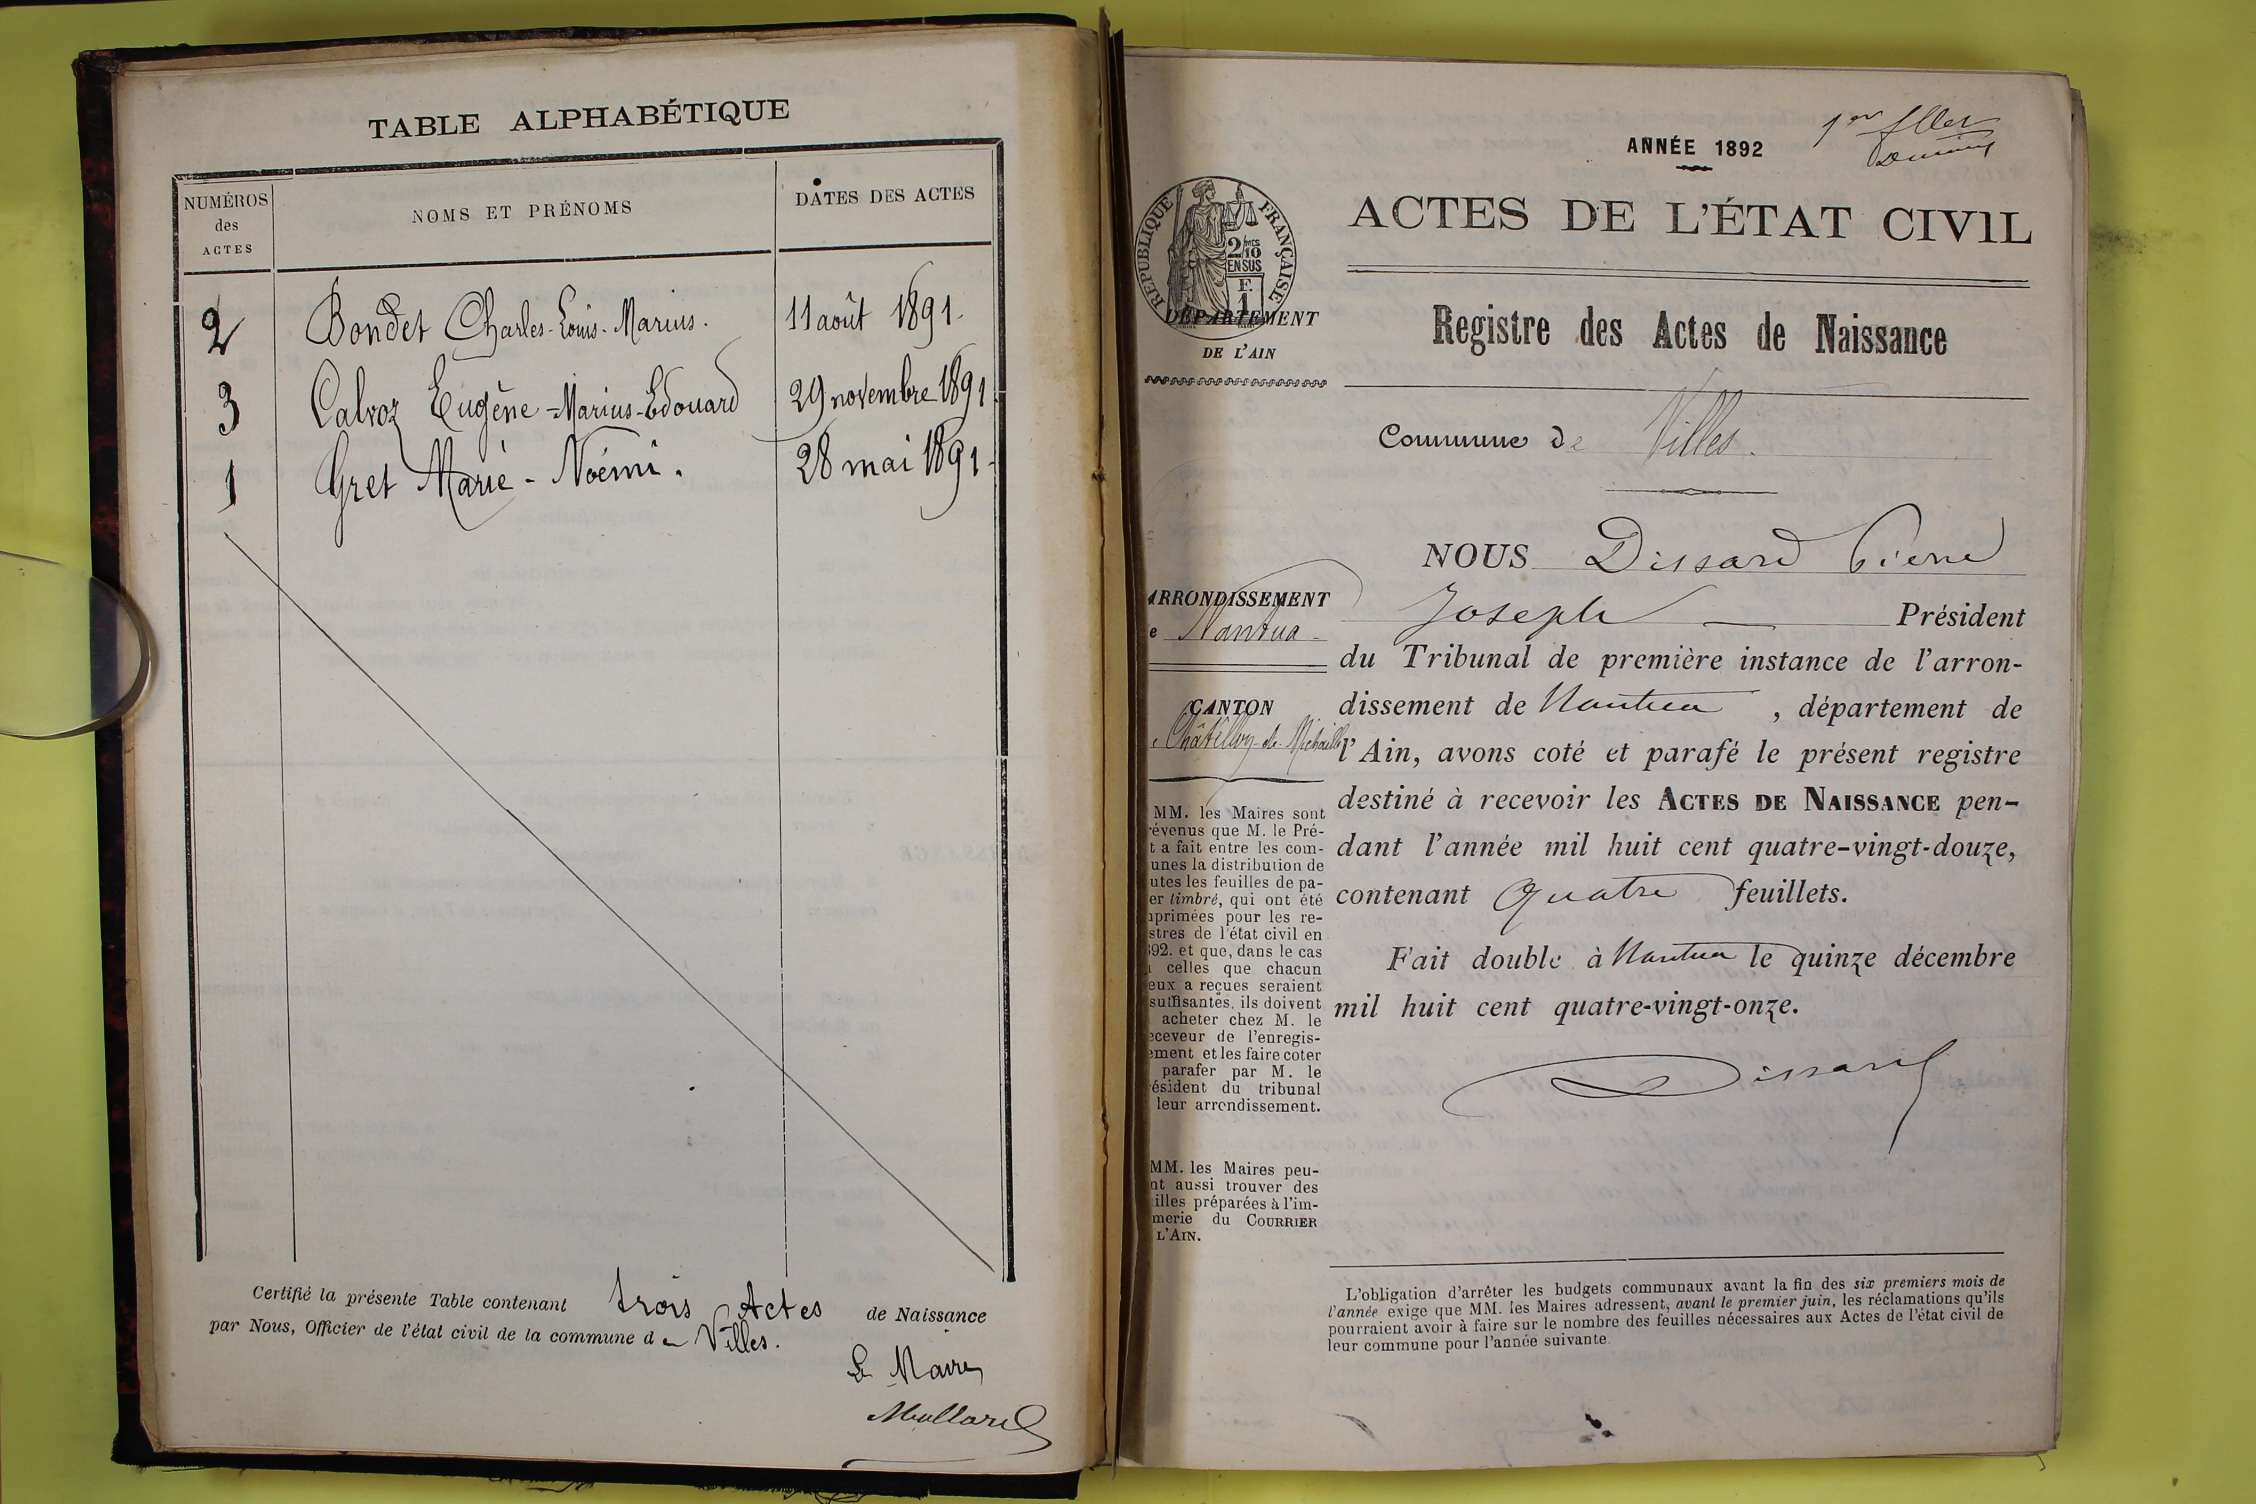 TABLE ALPHABÉTIQUE
NUMÉROS des ACTES
NOMS ET PRÉNOMS
DATES DES ACTES
2 Bondet Charles-Louis-Marius. 11 août 1891.
3 Calvoz Eugène-Marius-Edouard 29 novembre 1891
1 Gret Marie-Noémi. 28 mai 1891.
Certifié la présente Table contenant trois Actes de Naissance
par Nous, Officier de l'état civil de la commune de Villes.
Le Maire
ANNÉE 1892
1er
ACTES DE L'ÉTAT CIVIL
RÉPUBLIQUE FRANÇAISE
2/10
EN SUS
F.
1
DÉPARTEMENT
DE L'AIN
Registre des Actes de Naissance
Commune de Villes.
ARRONDISSEMENT
e Nantua
CANTON
e Châtillon-de-Michaille
MM. les Maires sont
révenus que M. le Pré-
t a fait entre les com-
unes la distribution de
utes les feuilles de pa-
er timbré, qui ont été
primées pour les re-
stres de l'état civil en
92. et que, dans le cas
celles que chacun
eux a reçues seraient
suffisantes, ils doivent
acheter chez M. le
eceveur de l'enregis-
ement et les faire coter
parafer par M. le
résident du tribunal
leur arrondissement.
MM. les Maires peu-
nt aussi trouver des
illes préparées à l'im-
merie du COURRIER
L'AIN.
NOUS Dissard Pierre
Joseph Président
du Tribunal de première instance de l'arron-
dissement de Nantua, département de
l'Ain, avons coté et parafé le présent registre
destiné à recevoir les ACTES DE NAISSANCE pen-
dant l'année mil huit cent quatre-vingt-douze,
contenant quatre feuillets.
Fait double à Nantua le quinze décembre
mil huit cent quatre-vingt-onze.
Dissard
L'obligation d'arrêter les budgets communaux avant la fin des six premiers mois de
l'année exige que MM. les Maires adressent, avant le premier juin, les réclamations qu'ils
pourraient avoir à faire sur le nombre des feuilles nécessaires aux Actes de l'état civil de
leur commune pour l'année suivante